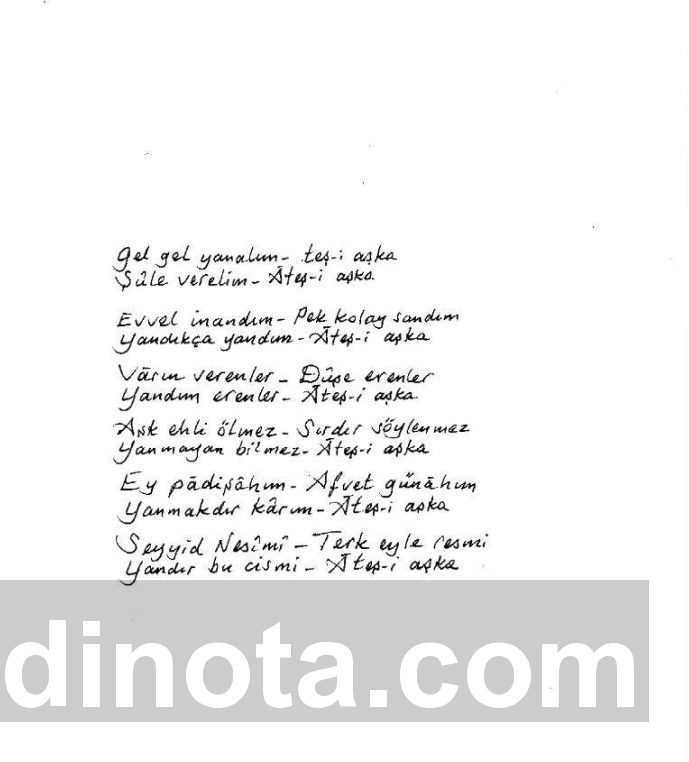 Gel gel yanalım - teş-i aşka
Şûle verelim - Âteş-i aşka
Evvel inandım - Pek kolay sandım
Yandıkça yandım - Âteş-i aşka
Vârın verenler - Dûşe erenler
Yandım erenler - Âteş-i aşka
Aşk ehli ölmez - Sırdır söylenmez
Yanmayan bilmez - Âteş-i aşka
Ey pâdişâhım - Afvet günâhım
Yanmakdır kârım - Âteş-i aşka
Seyyid Nesîmî - Terk eyle resmi
Yandır bu cismi - Âteş-i aşka
dinota.com